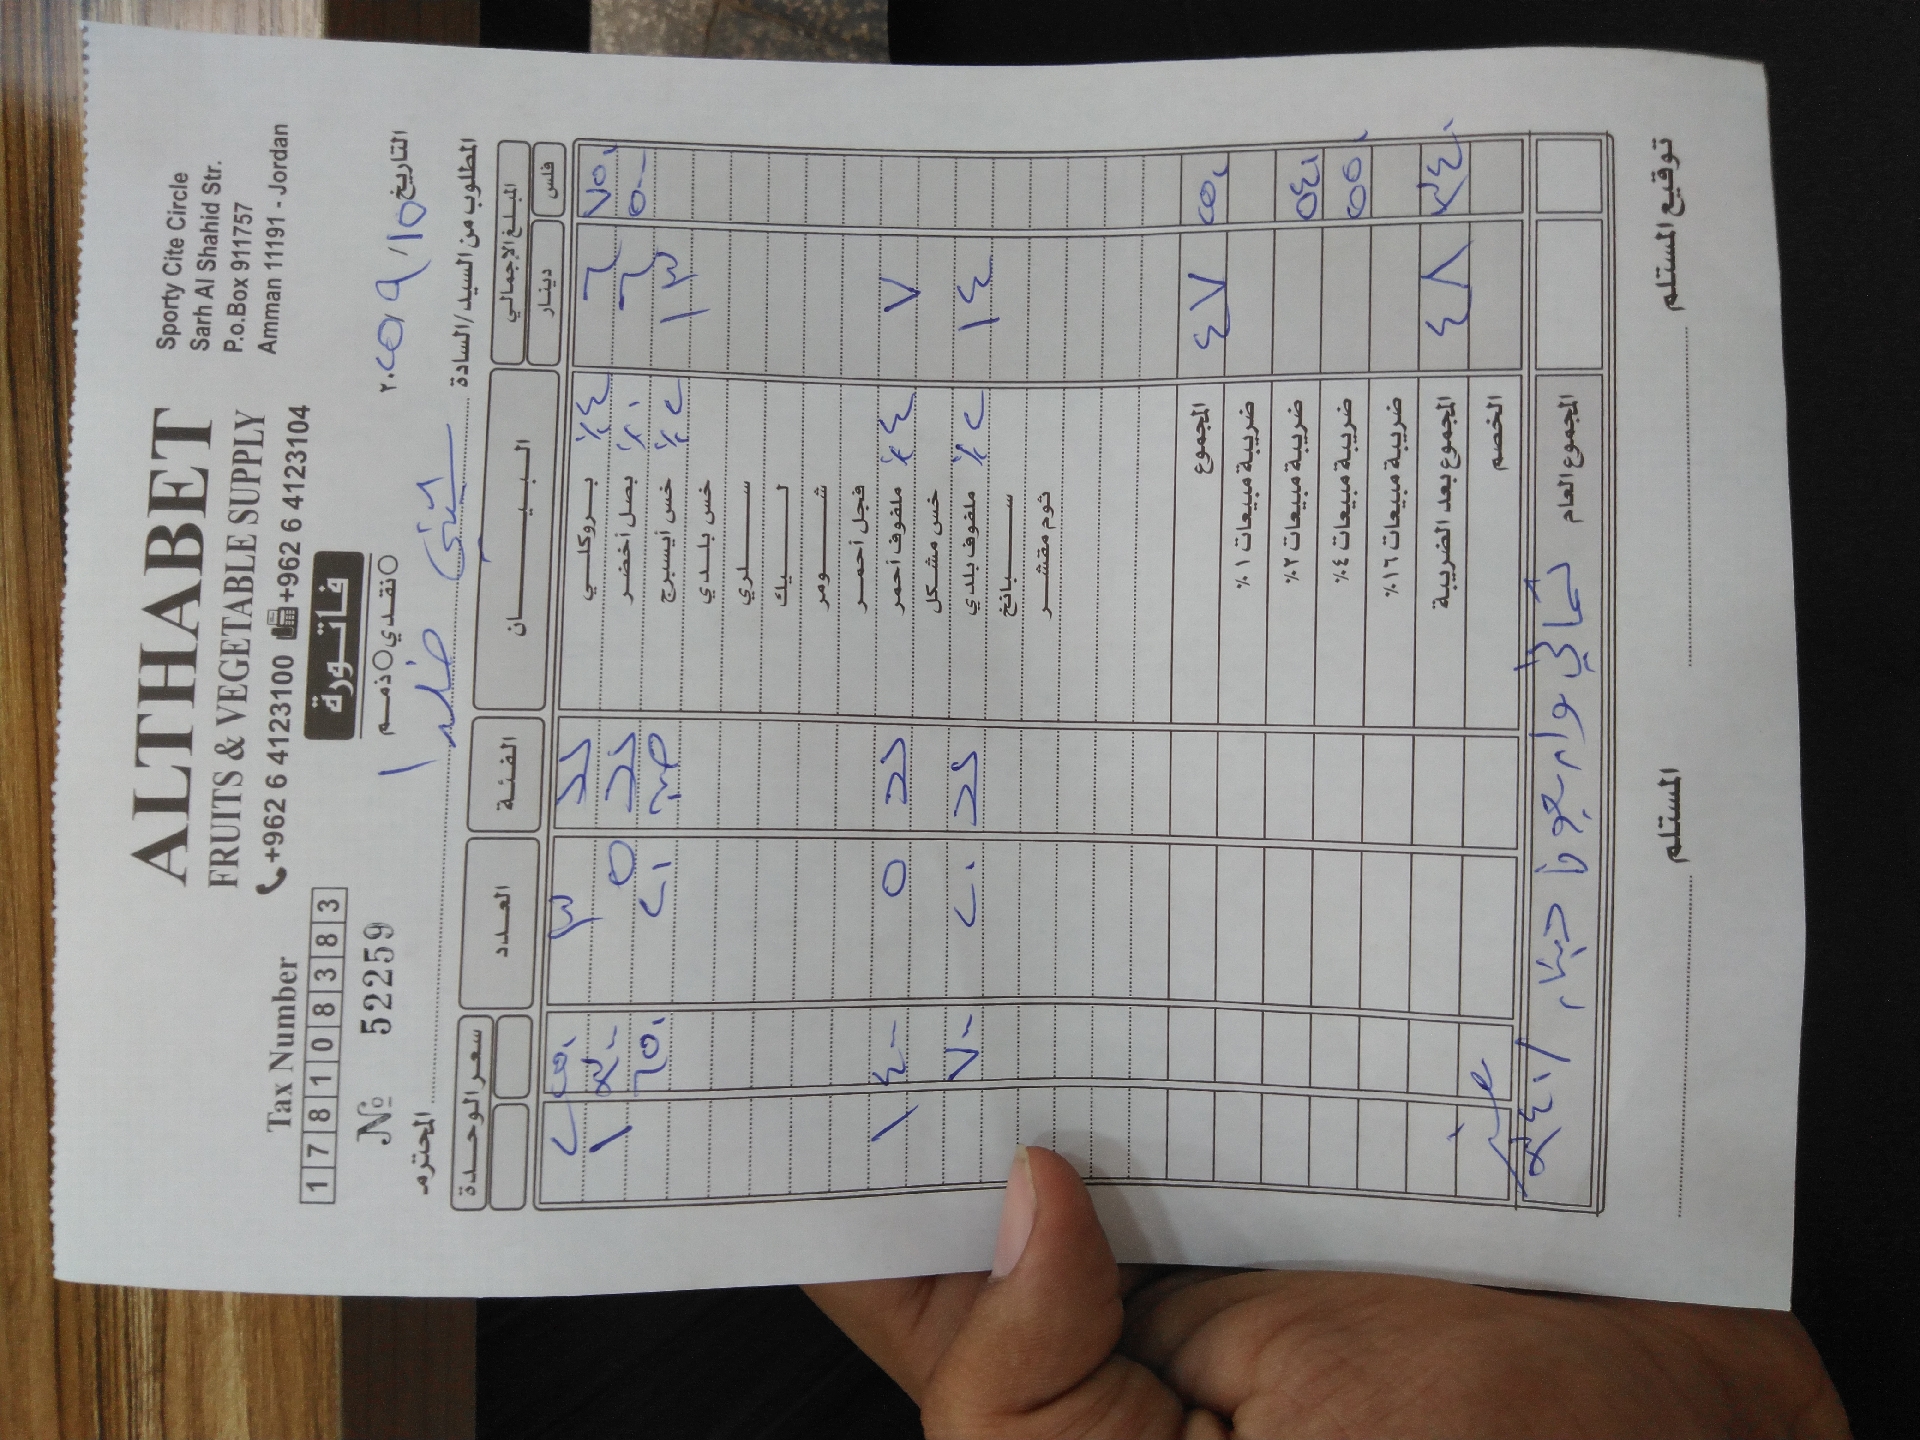 ALTHABET
FRUITS & VEGETABLE SUPPLY
+962 6 4123100 +962 6 4123104
Sporty Cite Circle
Sarh Al Shahid Str.
P.o.Box 911757
Amman 11191 - Jordan
Tax Number
1 7 8 1 0 8 3 8 3
فاتورة
№ 52259
نقدي ذمم
التاريخ ١٥ / ٩ / ٢٠٢٥
المطلوب من السيد/السادة
المحترم
المبلغ الإجمالي البيان الفئة العدد سعر الوحدة
فلس دينار
٧٥٠ ٦ بروكلي ٤٪ ٣ ٢٥٠ ٢
٥٠٠ ٦ بصل أخضر ٠٪ ٥ ٣٠٠ ١
١٣ خس أيسبرج ٢٪ ٢٠ ٦٥٠
خس بلدي
سلري
ليك
شومر
فجل أحمر
٧ ملفوف أحمر ٤٪ ٥ ٤٠٠ ١
خس مشكل
١٤ ملفوف بلدي ٢٪ ٢٠ ٧٠٠
سبانخ
ثوم مقشر
٢٥٠ ٤٧ المجموع
ضريبة مبيعات ١٪
٥٤٠ ضريبة مبيعات ٢٪
٥٥٠ ضريبة مبيعات ٤٪
ضريبة مبيعات ١٦٪
٣٤٠ ٤٨ المجموع بعد الضريبة
الخصم
المجموع العام ثماني واربعون دينار / ٣٤٠
توقيع المستلم
المستلم